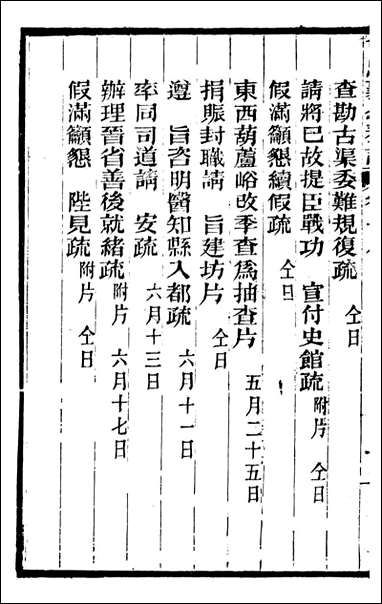 查勘古渠委難規復疏 仝日
請將已故提臣戰功 宣付史館疏 附片 仝日
假滿籲懇續假疏 仝日
東西葫蘆峪改季查為抽查片 五月二十五日
捐賑封職請 旨建坊片 仝日
遵 旨咨明醫知縣入都疏 六月十一日
率同司道請 安疏 六月十三日
辦理晉省善後就緒疏 附片 六月十七日
假滿籲懇 陛見疏 附片 仝日